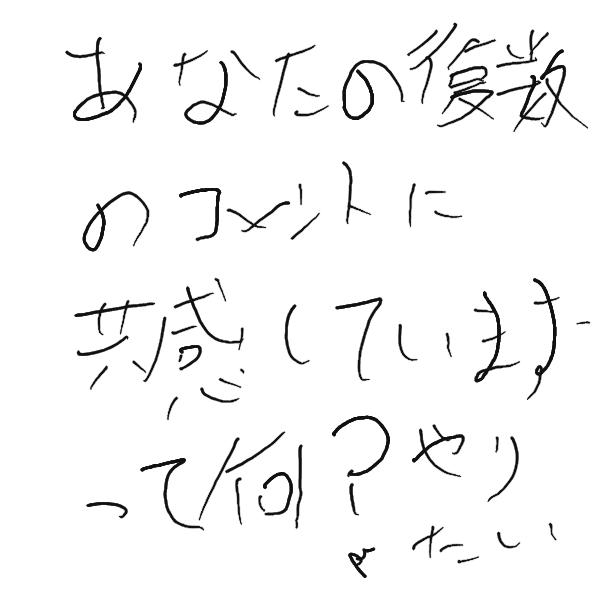 あなたの復数
のコメントに
共感しています
って何？やり
たい